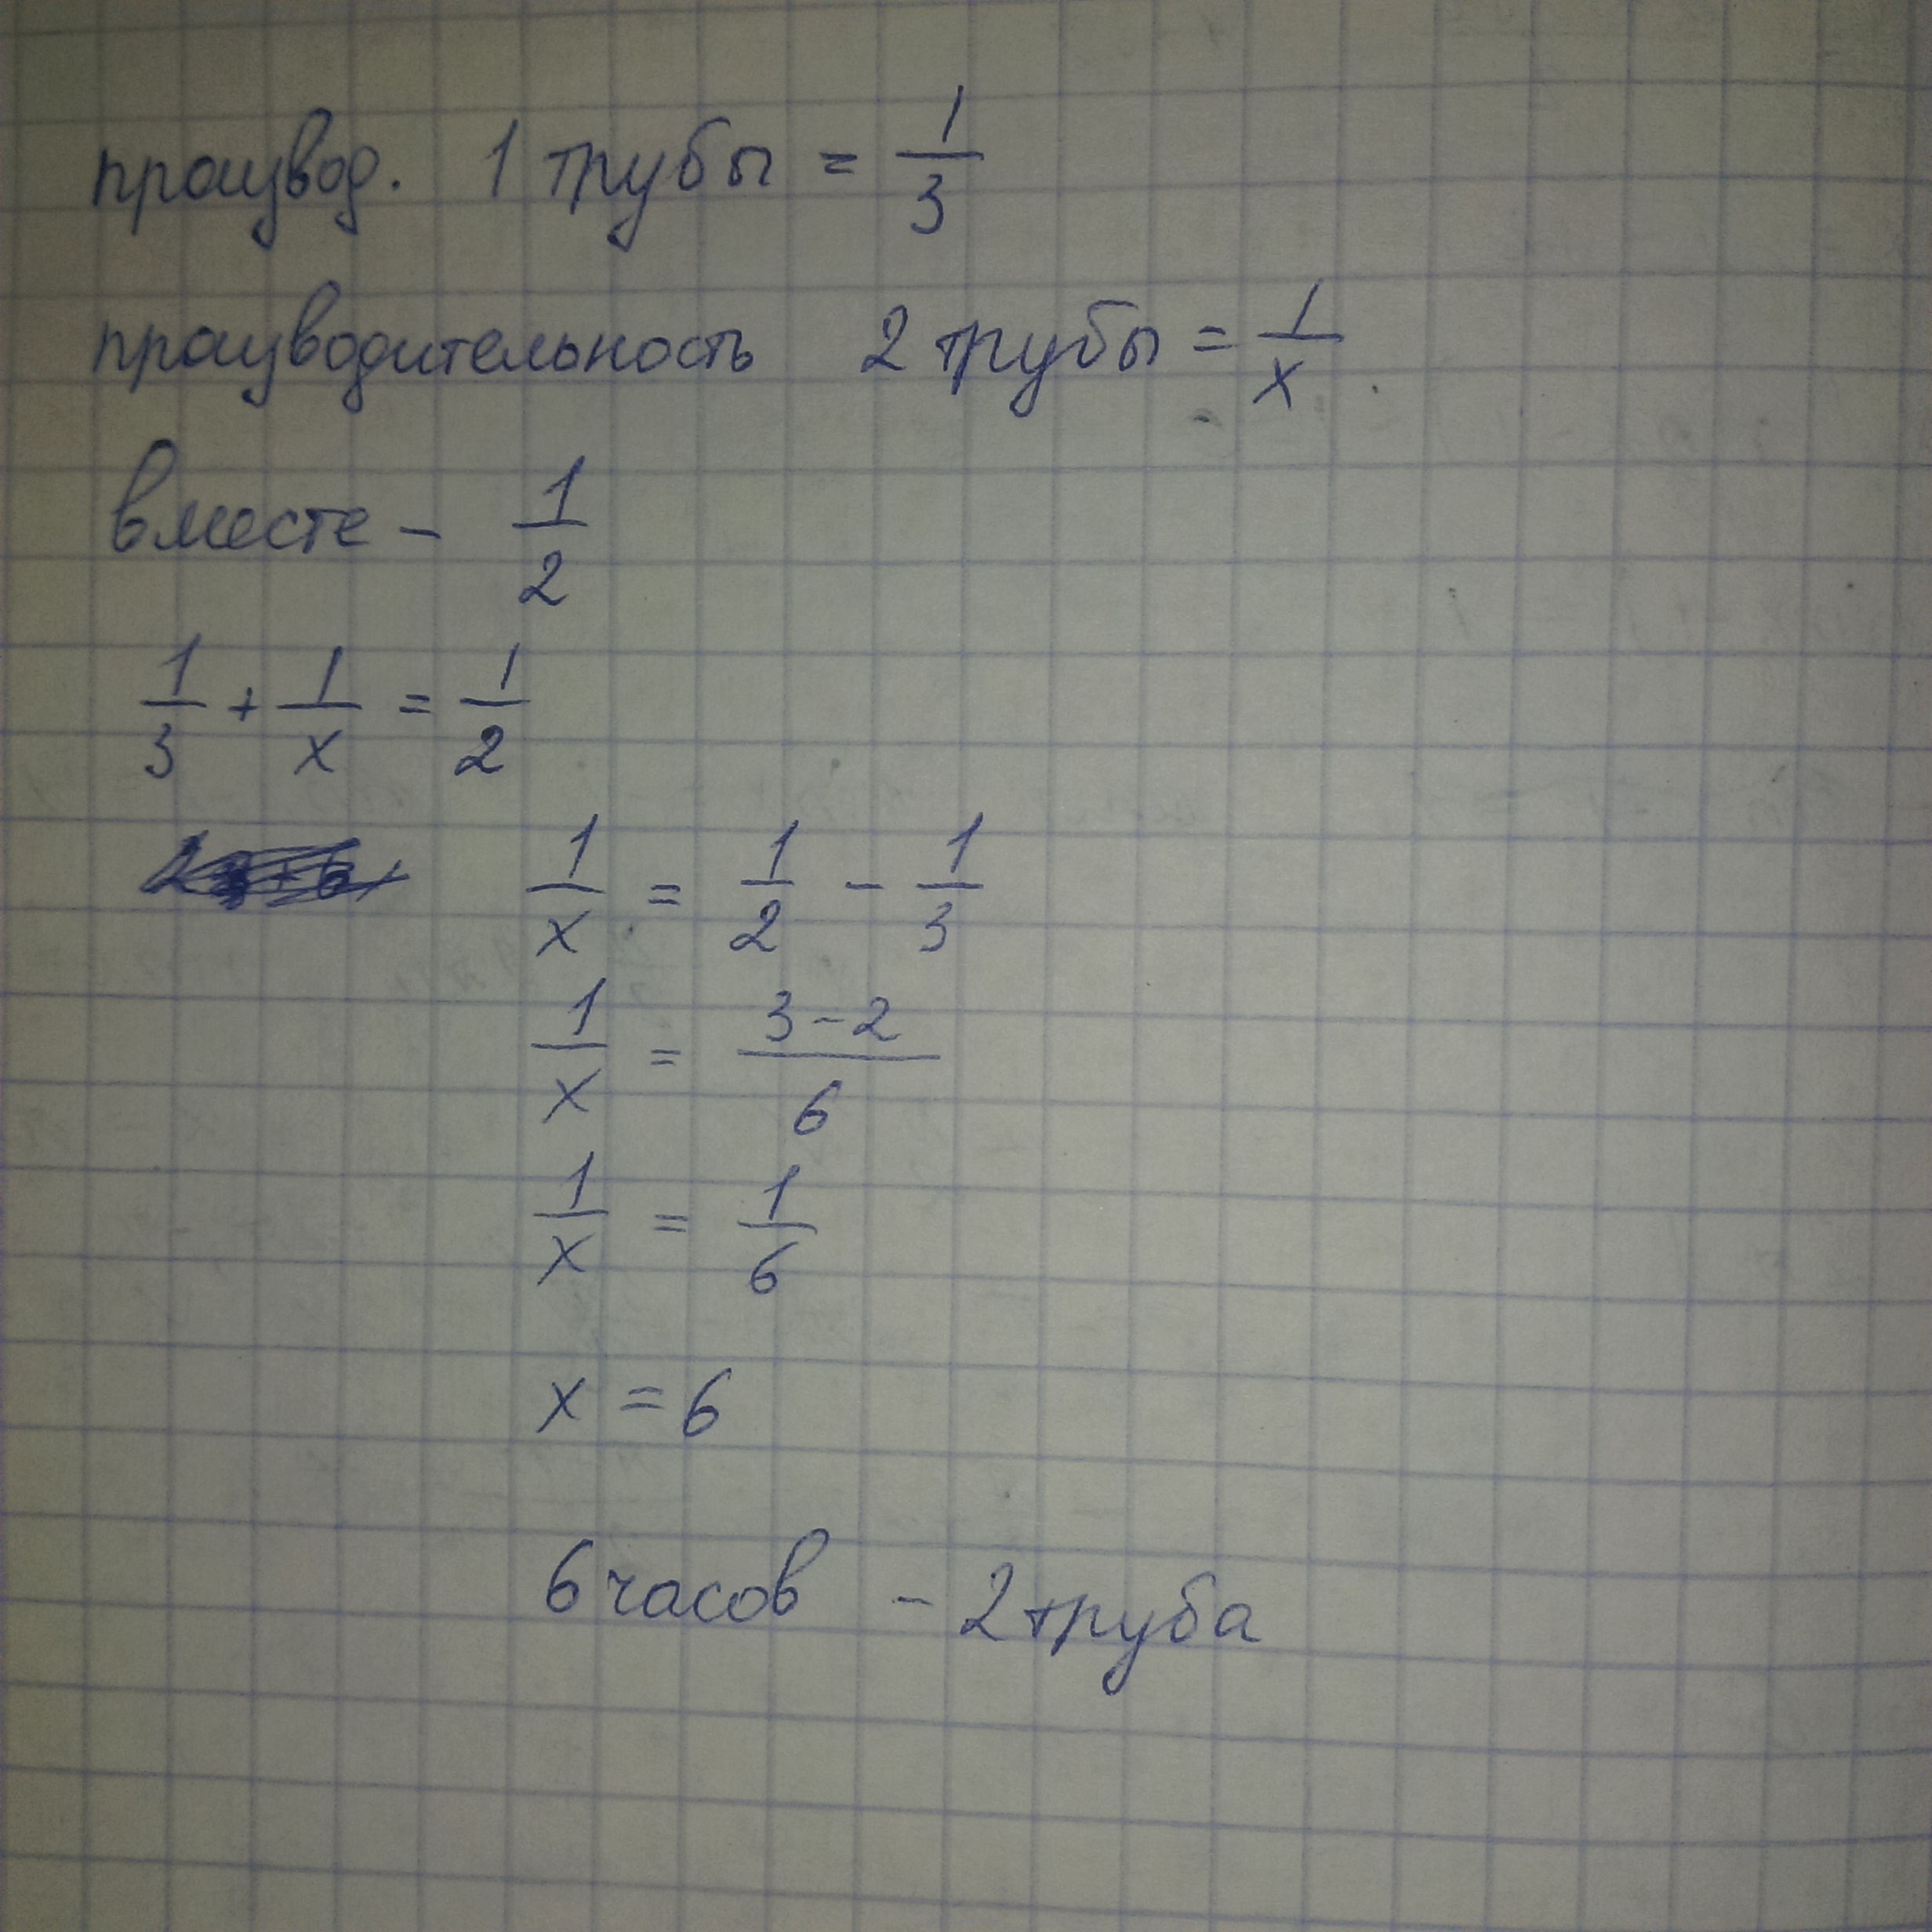 производ. 1 трубы = 1/3
производительность 2 трубы = 1/x
вместе - 1/2
1/3 + 1/x = 1/2
1/x = 1/2 - 1/3
1/x = (3-2)/6
1/x = 1/6
x = 6
6 часов - 2 труба